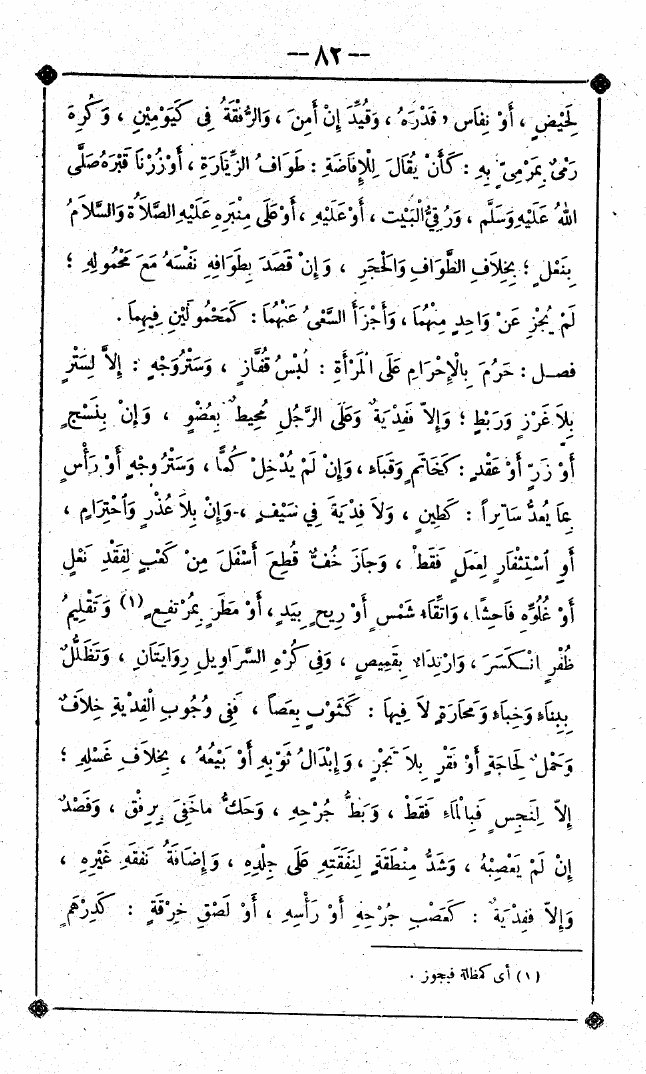 — ٨٢ —
لِحَيْضٍ ، أَوْ نِفَاسٍ ، قَدْرَهُ ، وَقُيِّدَ إِنْ أَمِنَ ، وَالرُّفْقَةُ فِى كَيَوْمَيْنِ ، وَكُرِهَ
رَمْىٌ بِمَرْمِىٍّ بِهِ : كَأَنْ يُقَالَ لِلْإِفَاضَةِ : طَوَافُ الزِّيَارَةِ ، أَوْ زُرْنَا قَبْرَهُ صَلَّى
اللهُ عَلَيْهِ وَسَلَّم ، وَرُقِىُّ الْبَيْت ، أَوْ عَلَيْهِ ، أَوْ عَلَى مِنْبَرِهِ عَلَيْهِ الصَّلَاةُ وَالسَّلَامُ
بِنَعْلٍ ؛ بِخِلَافِ الطَّوَافِ وَالْحِجْرِ ، وَإِنْ قَصَدَ بِطَوَافِهِ نَفْسَهُ مَعَ مَحْمُولِهِ ؛
لَمْ يُجْزِ عَنْ وَاحِدٍ مِنْهُمَا ، وَأَجْزَأَ السَّعْىُ عَنْهُمَا : كَمَحْمُولَيْنِ فِيهِمَا .
فصـل : حَرُمَ بِالْإِحْرَامِ عَلَى الْمَرْأَةِ : لُبْسُ قُفَّازٍ ، وَسَتْرُ وَجْهٍ : إِلاَّ لِسَتْرٍ
بِلاَ غَرْزٍ وَرَبْطٍ ؛ وَإِلاَّ فَفِدْيَةٌ وَعَلَى الرَّجُلِ مُحِيطٌ بِعُضْوٍ ، وَإِنْ بِنَسْجٍ
أَوْ زَرٍّ أَوْ عَقْدٍ : كَخَاتَمٍ وَقَبَاءٍ ، وَإِنْ لَمْ يُدْخِلْ كُمًّا ، وَسَتْرُ وَجْهٍ أَوْ رَأْسٍ
بِمَا يُعَدُّ سَاتِراً : كَطِينٍ ، وَلاَ فِدْيَةَ فِي سَيْفٍ ، وَإِنْ بِلاَ عُذْرٍ وَاحْتِزَامٍ ،
أَوِ اسْتِثْفَارٍ لِعَمَلٍ فَقَطْ ، وَجَازَ خُفٌّ قُطِعَ أَسْفَلَ مِنْ كَعْبٍ لِفَقْدِ نَعْلٍ
أَوْ غُلُوِّهِ فَاحِشًا ، وَاتِّقَاءُ شَمْسٍ أَوْ رِيحٍ بِيَدٍ ، أَوْ مَطَرٍ بِمُرْتَفِعٍ (١) وَتَقْلِيمُ
ظُفْرٍ انْـكَسَرَ ، وَارْتِدَاءٌ بِقَمِيصٍ ، وَفِى كُرْهِ السَّرَاوِيلِ رِوَايَتَانِ ، وَتَظَلُّلٌ
بِبِنَاءٍ وَخِبَاءٍ وَمَحَارَةٍ لاَ فِيهَا : كَثَوْبٍ بِعَصاً ، فَفِى وُجُوبِ الْفِدْيَةِ خِلاَفٌ
وَحَمْلٌ لِحَاجَةٍ أَوْ فَقْرٍ بِلاَ تَجْرٍ ، وَإِبْدَالُ ثَوْبِهِ أَوْ بَيْعُهُ ، بِخِلاَفِ غَسْلِهِ ؛
إِلاَّ لِنَجِسٍ فَبِالْمَاءِ فَقَطْ ، وَبَطُّ جُرْحِهِ ، وَحَكُّ مَاخَفِىَ بِرِفْقٍ ، وَفَصْدٌ
إِنْ لَمْ يَعْصِبْهُ ، وَشَدُّ مِنْطَقَةٍ لِنَفَقَتِهِ عَلَى جِلْدِهِ ، وَإِضَافَةُ نَفَقَةِ غَيْرِهِ ،
وَإِلاَّ فَفِدْيَةٌ : كَعَصْبِ جُرْحِهِ أَوْ رَأْسِهِ ، أَوْ لَصْقِ خِرْقَةٍ : كَدِرْهَمٍ
(١) أى كمظلة فيجوز .